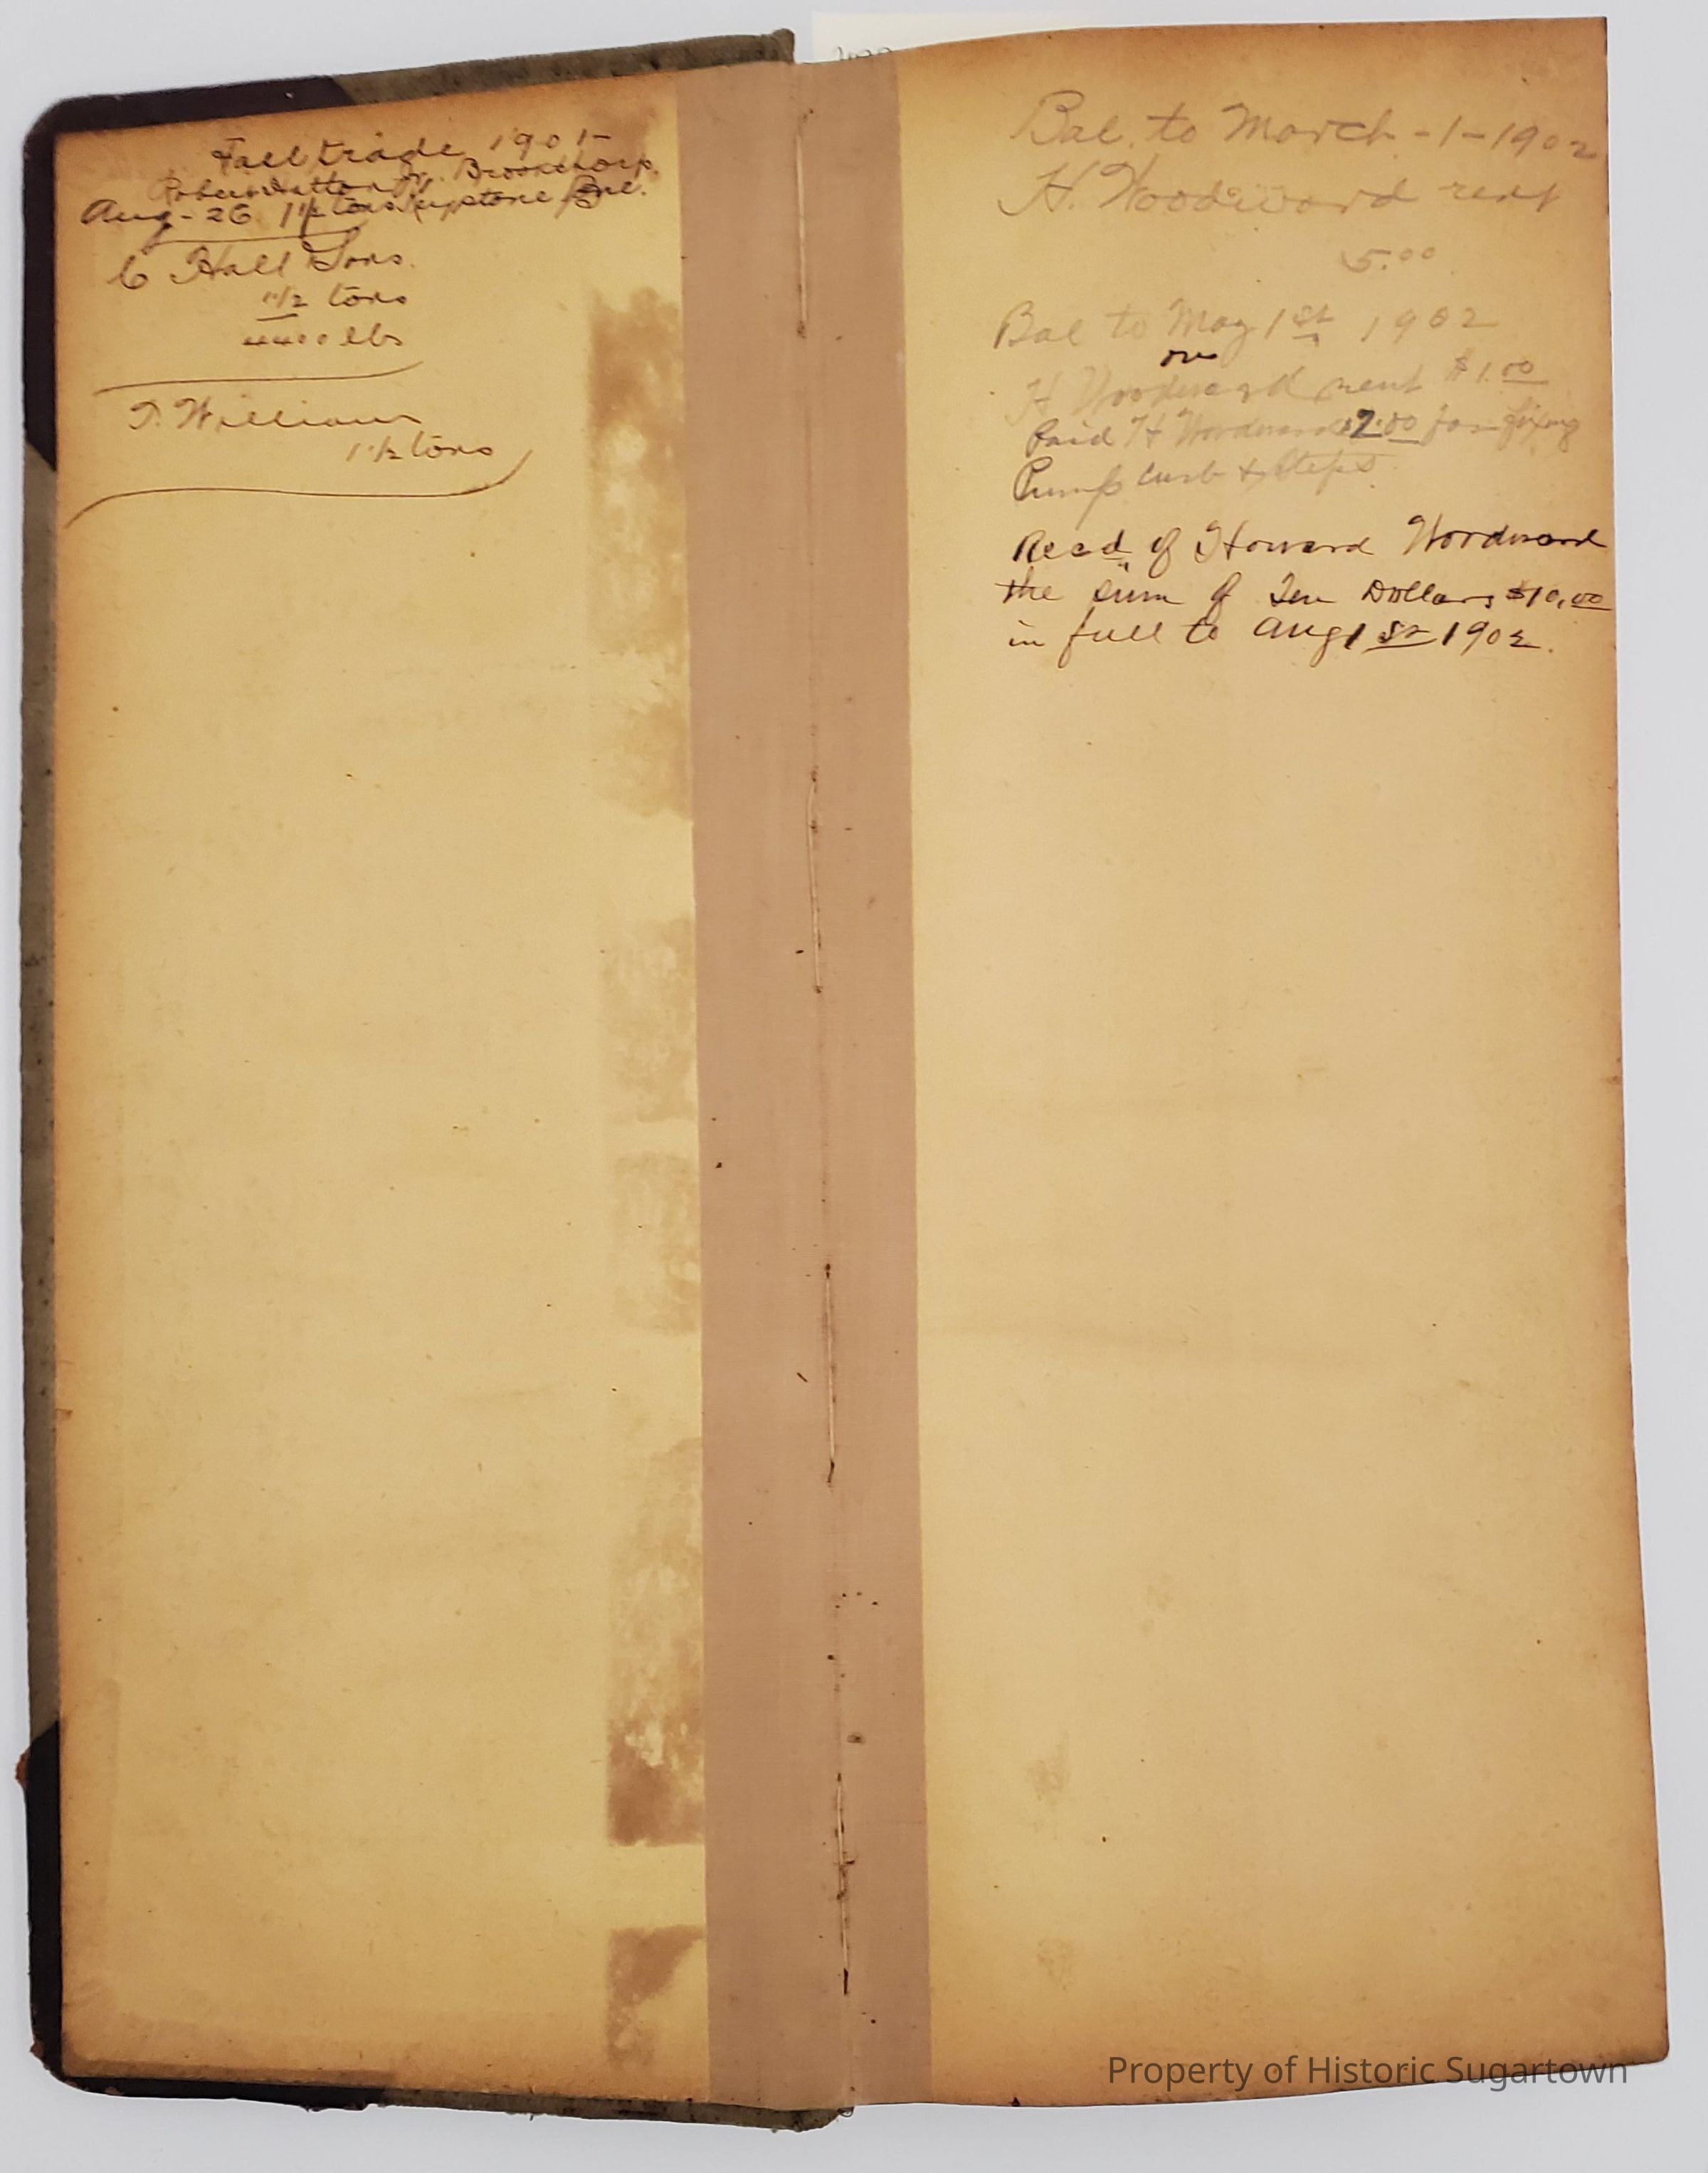 Fall trade 1901-
Robert Hatton Jr. Brookthorp.
Aug - 26 1 1/2 tons Keystone Bne.
C Hall Sons.
1 1/2 tons
lbs
T. William
1 1/2 tons
Bal. to March - 1 - 1902
H. Woodword rent
5.00
Bal to May 1st 1902
on
H Woodward rent $1.00
Paid H Woodward 2.00 for fixing
Pump curb & Steps.
Recd of Howard Woodward
the sum of Ten Dollars $10.00
in full to Aug 1st 1902.
Property of Historic Sugartown